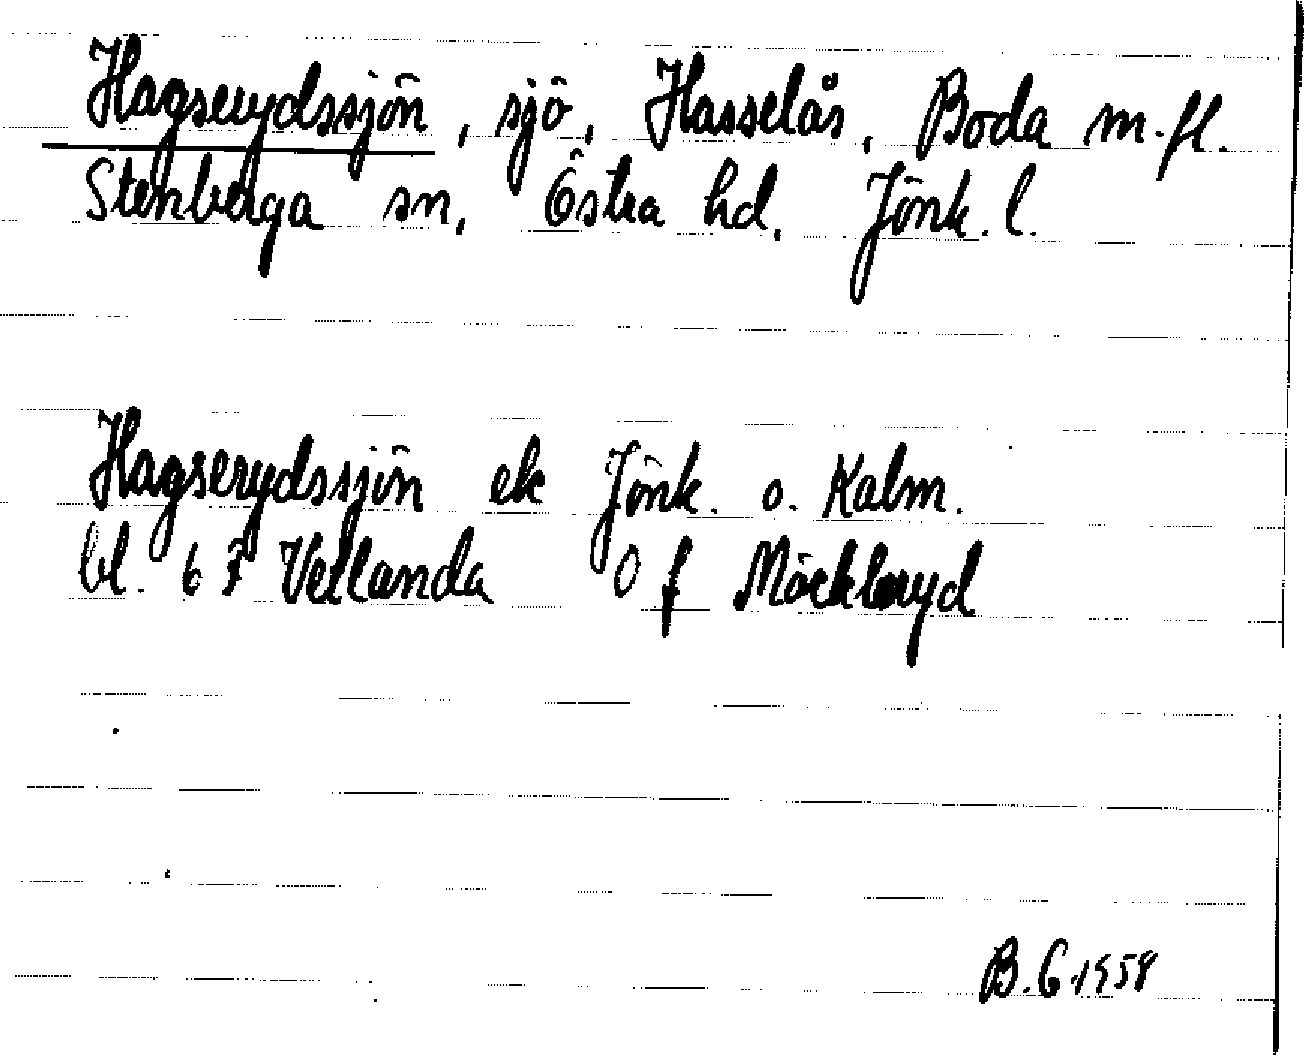 Hagserydssjön, sjö, Hasselås, Boda m.fl.
Stenberga sn, Östra hd, Jönk. l.
Hagserydssjön ek Jönk. o. Kalm.
bl. 6 F Vetlanda O f Möckleryd
B.G 1958